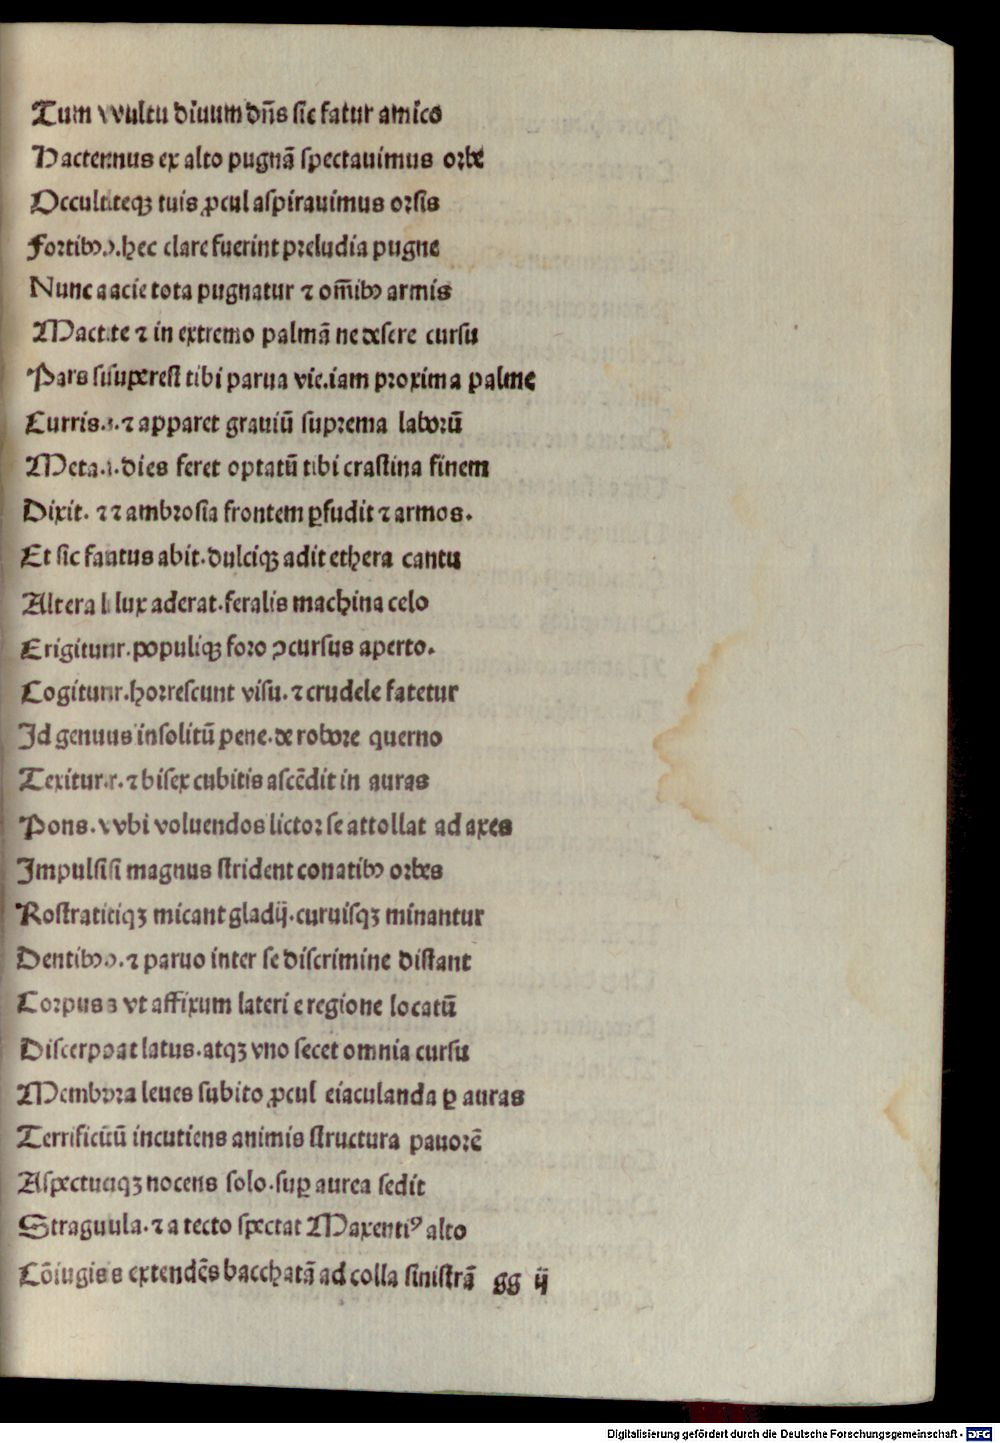 Tum vvultu diuum dn̄s sic fatur amico
Hactennus ex alto pugnā spectauimus orbē
Occultiteqꝫ tuis ꝓcul aspirauimus orsis
Fortibꝰ.hec clare fuerint preludia pugne
Nunc aacie tota pugnatur ⁊ om̄ibꝰ armis
Mactite ⁊ in extremo palmā ne desere cursu
Pars sisuperest tibi parua vie.iam proxima palme
Curris.⁊ apparet grauiū suprema laborū
Meta.dies feret optatū tibi crastina finem
Dixit.⁊⁊ ambrosia frontem ꝑfudit ⁊ armos.
Et sic fautus abit.dulciqꝫ adit ethera cantu
Altera l lux aderat.feralis machina celo
Erigitunr.populiqꝫ foro ꝯcursus aperto.
Cogitunr.horrescunt visu.⁊ crudele fatetur
Id genuus insolitū pene.de robore querno
Texitur.r.⁊ bisex cubitis ascēdit in auras
Pons.vvbi voluendos lictor se attollat ad axes
Impulsisi magnus strident conatibꝰ orbes
Rostratitiqꝫ micant gladij.curuisqꝫ minantur
Dentibꝰ.⁊ paruo inter se discrimine distant
Corpuss vt affixum lateri e regione locatū
Discerpoat latus.atqꝫ vno secet omnia cursu
Membora leues subito ꝓcul eiaculanda ꝑ auras
Terrificūū incutiens animis structura pauorē
Aspectuuqꝫ nocens solo.suꝑ aurea sedit
Straguula.⁊ a tecto spectat Maxentiꝰ alto
Cōiugiss extendēs bacchatā ad colla sinistrā gg ij
Digitalisierung gefördert durch die Deutsche Forschungsgemeinschaft - DFG